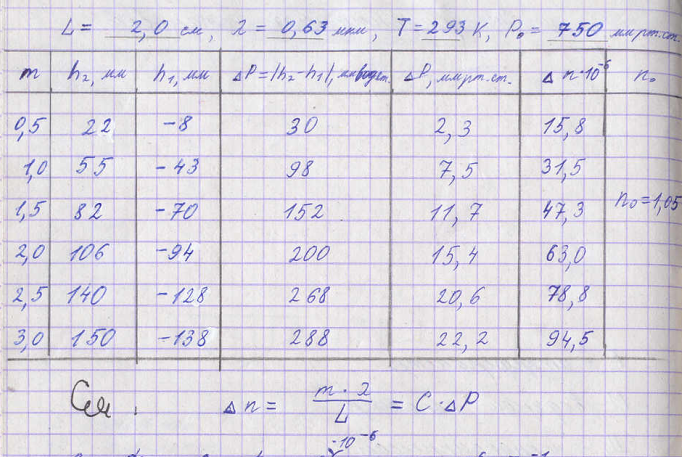 L = 2,0 см, λ = 0,63 мкм, T = 293 К, P₀ = 750 мм рт. ст.
m h₂, мм h₁, мм ΔP = |h₂ - h₁|, мм вод.ст. ΔP, мм рт. ст. Δn·10⁻⁶ n₀
0,5 22 -8 30 2,3 15,8
1,0 55 -43 98 7,5 31,5
1,5 82 -70 152 11,7 47,3 n₀ = 1,05
2,0 106 -94 200 15,4 63,0
2,5 140 -128 268 20,6 78,8
3,0 150 -138 288 22,2 94,5
Δn = m · λ / L = C · ΔP
·10⁻⁶